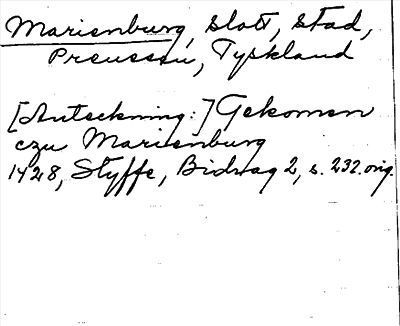 Marienburg, slott, stad,
Preussen, Tyskland
[Anteckning:] Gekomen
czu Marienburg
1428, Styffe, Bidrag 2, s. 232. orig.